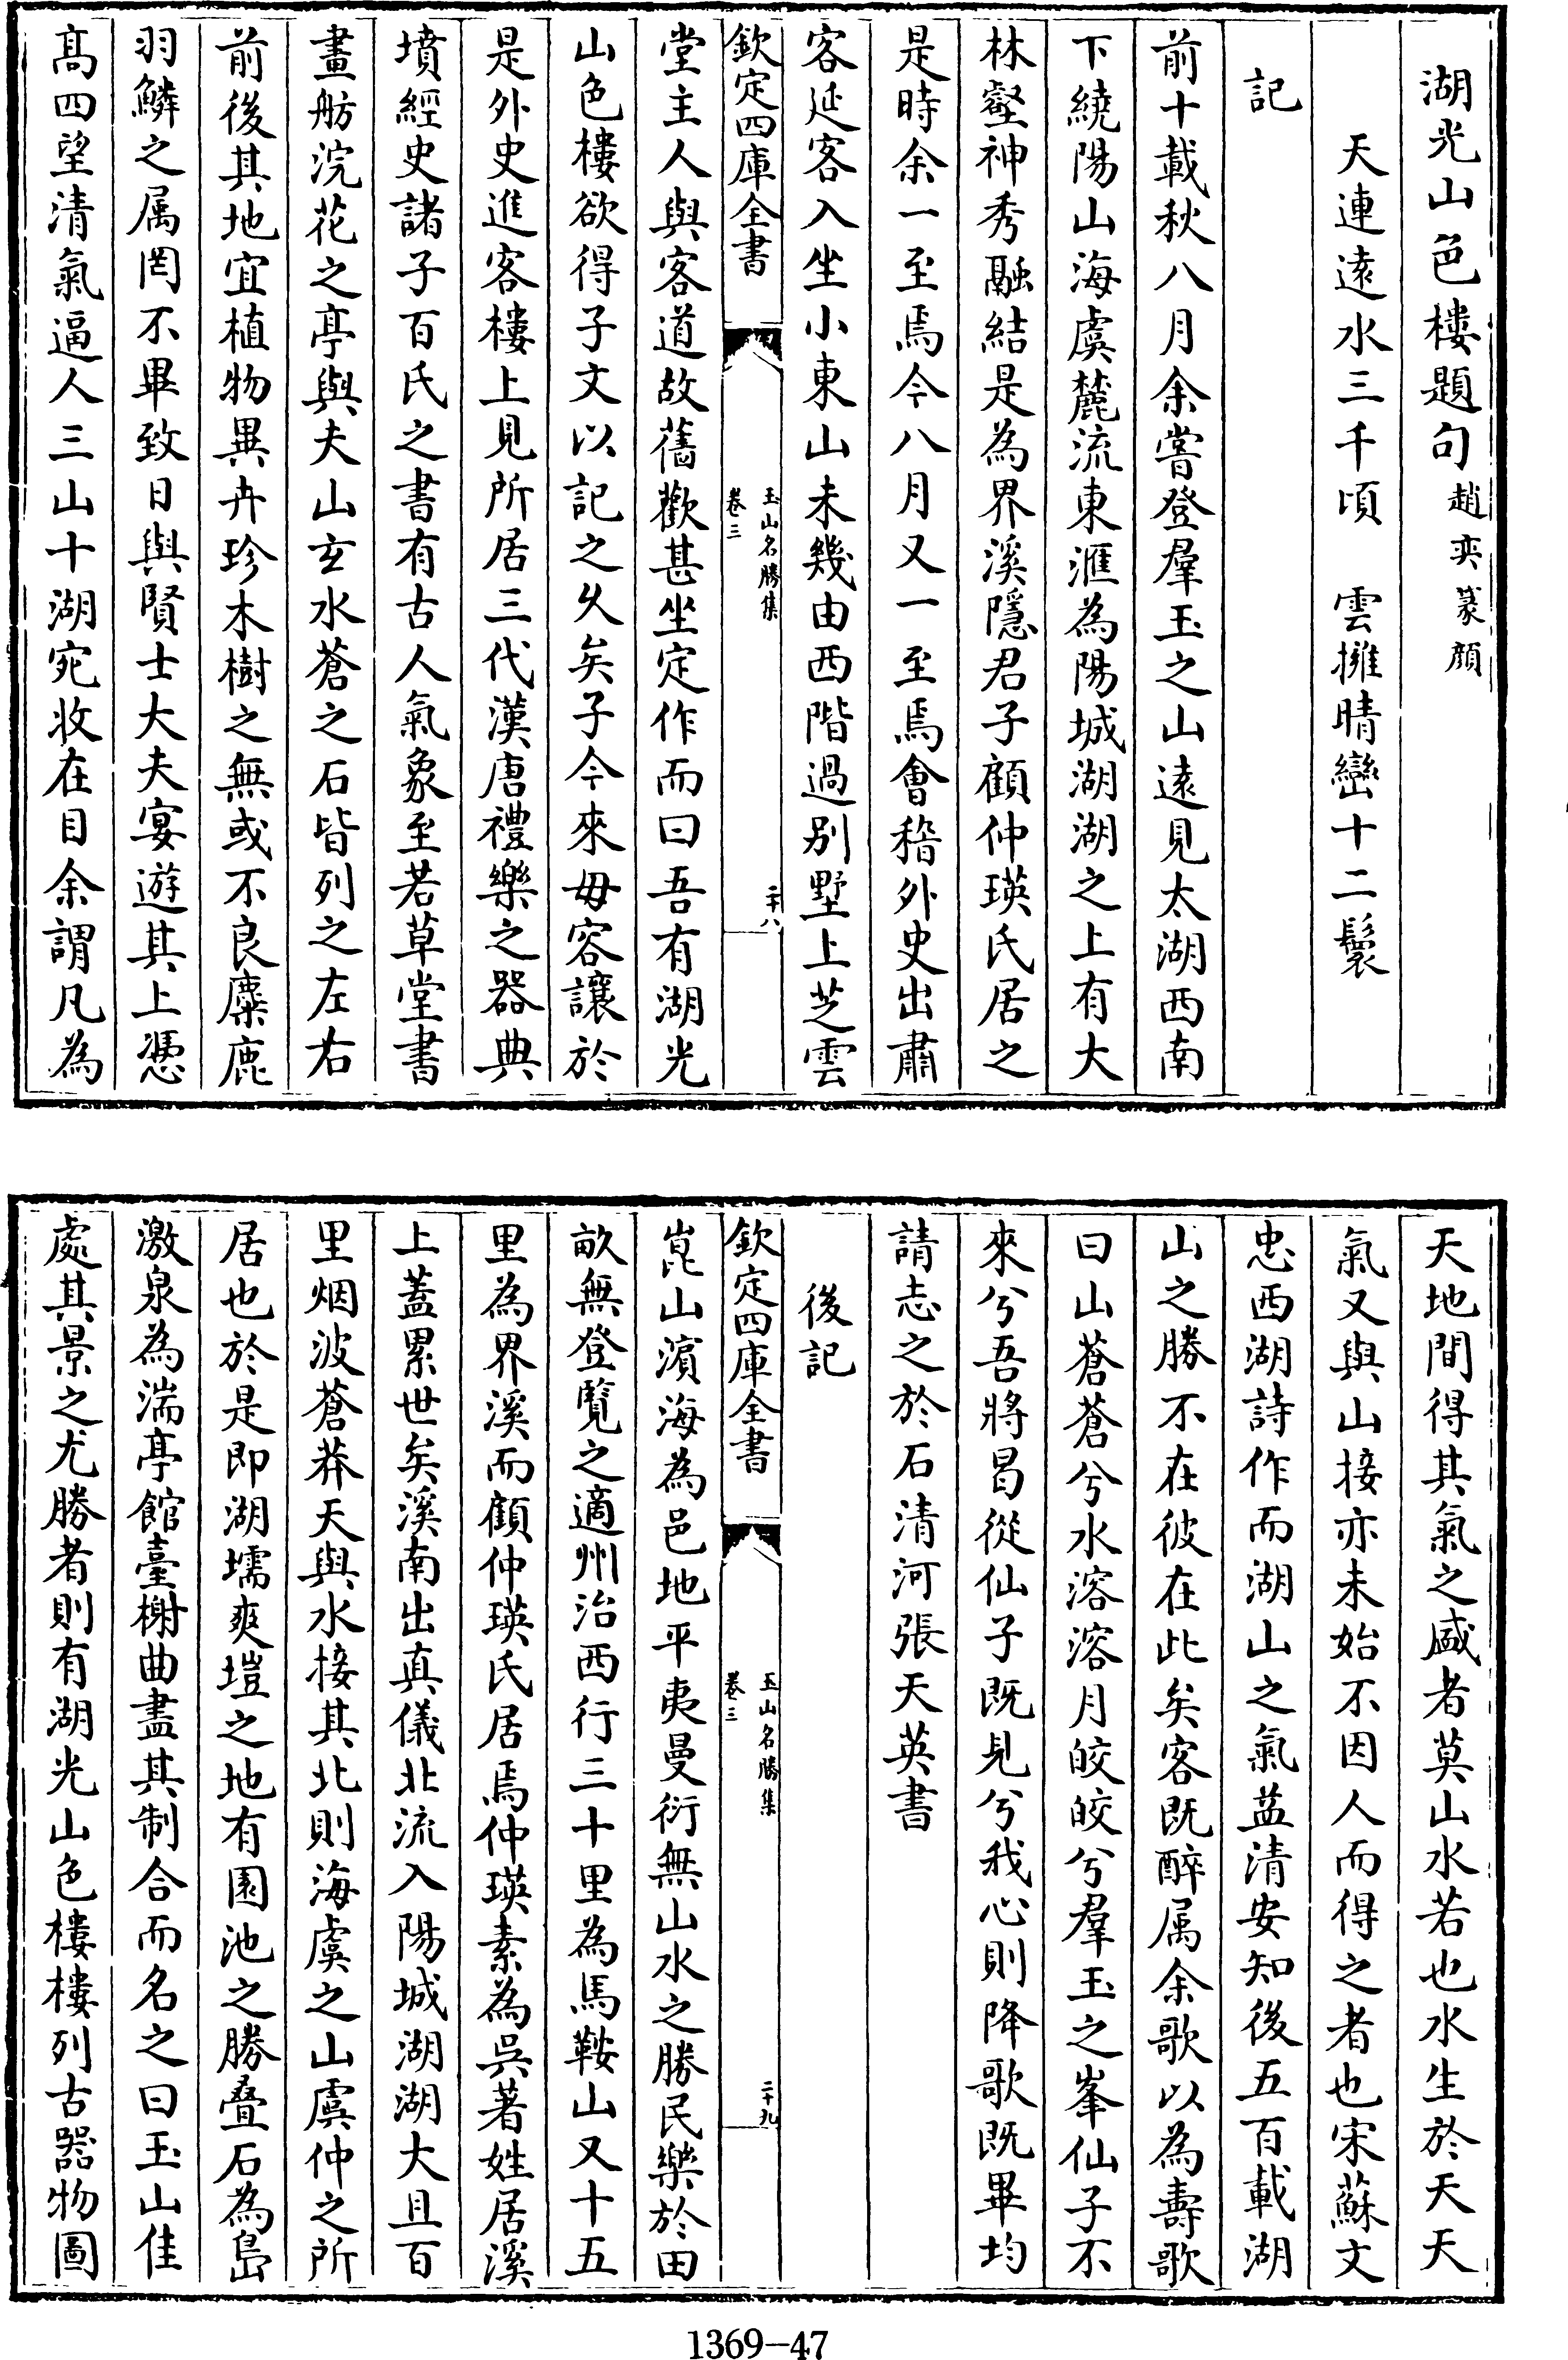 湖光山色樓題句趙奕篆顔
天連遠水三千頃　雲擁晴巒十二鬟
記
前十載秋八月余嘗登羣玉之山遠見太湖西南
下繞陽山海虞麓流東滙為陽城湖湖之上有大
林壑神秀融結是為界溪隱君子顧仲瑛氏居之
是時余一至焉今八月又一至焉會稽外史出肅
客延客入坐小東山未幾由西階過别墅上芝雲
欽定四庫全書
玉山名勝集
卷三
二十八
堂主人與客道故舊歡甚坐定作而曰吾有湖光
山色樓欲得子文以記之乆矣子今來毋容讓於
是外史進客樓上見所居三代漢唐禮樂之器典
墳經史諸子百氏之書有古人氣象至若草堂書
畫舫浣花之亭與夫山玄水蒼之石皆列之左右
前後其地宜植物異卉珍木樹之無或不良麋鹿
羽鱗之属罔不畢致日與賢士大夫宴遊其上憑
髙四望清氣逼人三山十湖宛收在目余謂凡為
天地間得其氣之盛者莫山水若也水生於天天
氣又與山接亦未始不因人而得之者也宋蘇文
忠西湖詩作而湖山之氣益清安知後五百載湖
山之勝不在彼在此矣客既醉属余歌以為壽歌
曰山蒼蒼兮水溶溶月皎皎兮羣玉之峯仙子不
來兮吾將曷從仙子既見兮我心則降歌既畢均
請志之於石清河張天英書
後記
欽定四庫全書
玉山名勝集
卷三
二十九
崑山濵海為邑地平夷曼衍無山水之勝民樂於田
畝無登覧之適州治西行三十里為馬鞍山又十五
里為界溪而顧仲瑛氏居焉仲瑛素為吳著姓居溪
上蓋累世矣溪南出真儀北流入陽城湖湖大且百
里烟波蒼莽天與水接其北則海虞之山虞仲之所
居也於是即湖壖爽塏之地有園池之勝疊石為島
激泉為湍亭館臺榭曲盡其制合而名之曰玉山佳
處其景之尤勝者則有湖光山色樓樓列古器物圖
1369-47